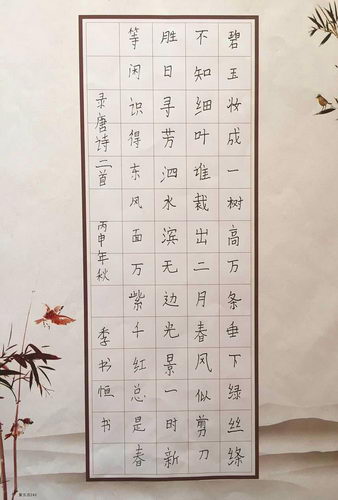 碧玉妆成一树高万条垂下绿丝绦
不知细叶堆裁出二月春风似剪刀
胜日寻芳泗水滨无边光景一时新
等闲识得东风面万紫千红总是春
录唐诗二首 丙申年秋 季书恒书